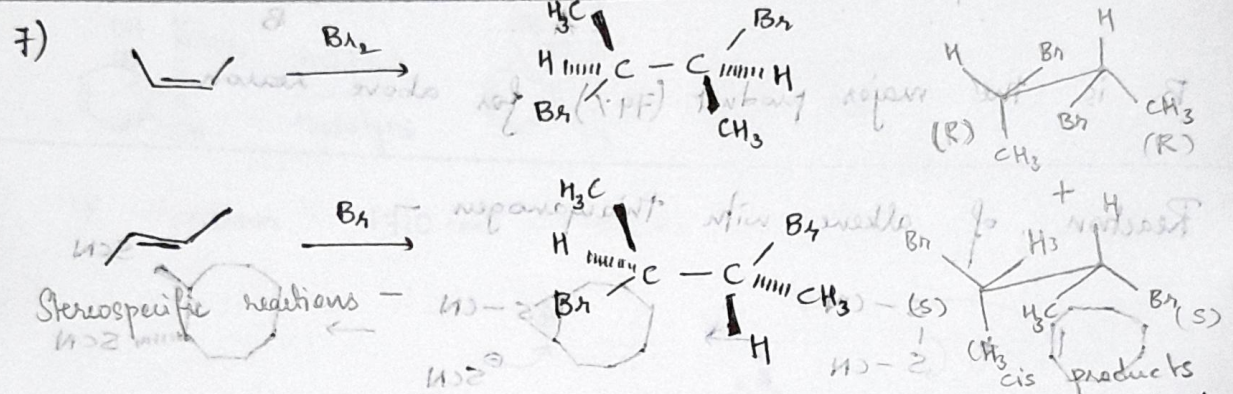 7)
Br₂
H₃C Br
H C – C H
Br CH₃
H H
Br
Br
(R) CH₃ CH₃ (R)
+
Br
H₃C Br
H C – C CH₃
Br H
Br H3 H
(S) H₃C Br (S)
CH₃
Stereospecific reactions –
cis products